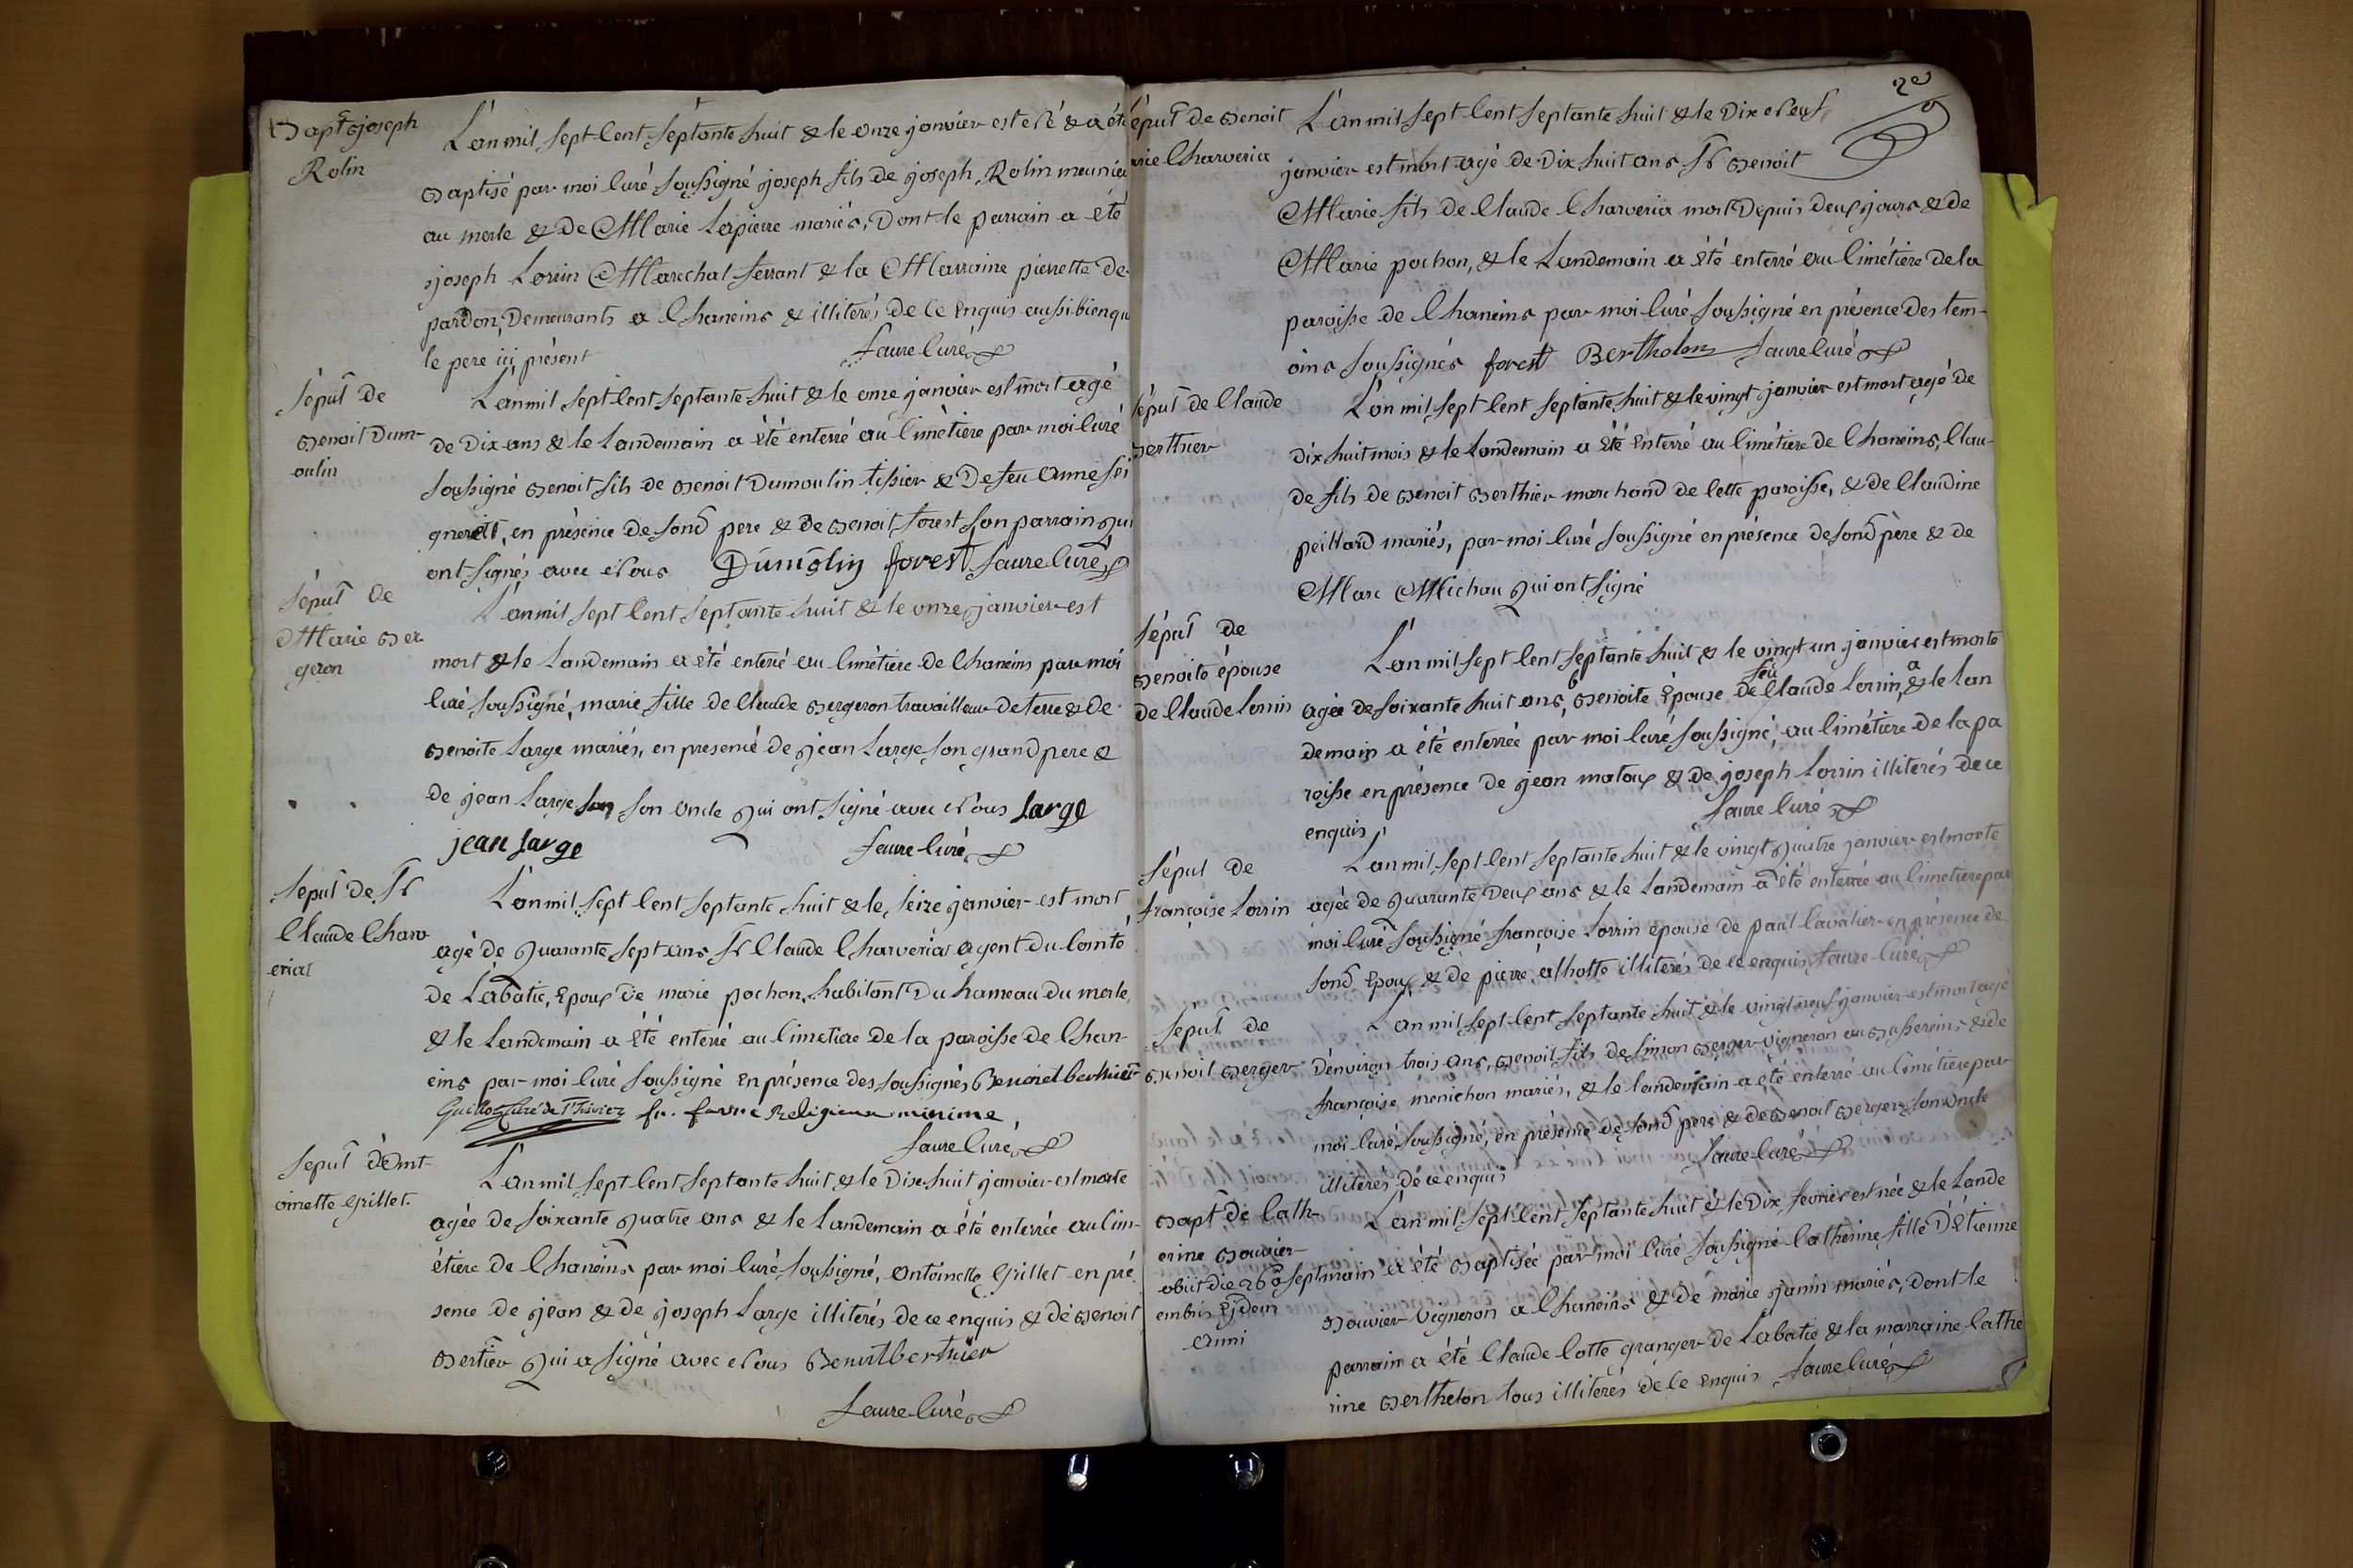 Bapt joseph
Rolin
L'an mil sept cent septante huit & le onze janvier est né & a été
Baptisé par moi curé soussigné joseph fils de joseph Rolin meunier
au merle & de Marie Lapierre mariés, Dont le parrain a été
joseph Lorrin Marechal ferrant & la Marraine pierrette de
pardon, Demeurants a Chaneins & illiterés de ce enquis aussi bien qu
le pere ici présent Faure Curé
sépult de
Benoit Dum-
oulin
L'an mil sept cent septante huit & le onze janvier est mort agé
de Dix ans & le Landemain a été enterré au Cimètiere par moi Curé
soussigné Benoit fils de Benoit Dumoulin tissier & De feu Anne
en présence de sond pere & de Benoit forest son parrain qui
ont signés avec Nous Dumolin forest Faure Curé
sépult de
Marie Ber
geron
L'an mil sept cent septante huit & le onze janvier est
mort & le Landemain a été enterré au Cimètiere de Chaneins par moi
Curé soussigné, marie fille de Claude Bergeron travailleur de terre & de
Benoite Large mariés, en presence de jean Large son grand pere &
de jean Large son son oncle qui ont signé avec Nous Large
jean Large Faure Curé
sepult de Sr
Claude Charv
eriat
L'an mil sept cent septante huit & le seize janvier est mort
agé de quarante sept ans Sr Claude Charveriat agent du Comte
de Labatie, Epoux de marie pochon, habitant du hameau du merle,
& le Landemain a été enterré au Cimetiere de la paroisse de Chan-
eins par moi Curé soussigné en présence des soussignés Benoit berthier
Guillot Curé de fr. favre Religieux minime
Faure Curé
sepult d'Ant-
oinette Grillet.
L'an mil sept cent septante huit & le Dix huit janvier est morte
agée de soixante quatre ans & le Landemain a été enterrée au Cim-
étiere de Chaneins par moi Curé soussigné, Antoinette Grillet en pré
sence de jean & de joseph Large illiterés de ce enquis & de Benoit
Bertier qui a signé avec Nous Benoit berthier
Faure Curé
sépult de Benoit
Marie Charveria
L'an mil sept cent septante huit & le Dix Neuf
janvier est mort agé de Dix huit ans Sr Benoit
Marie fils de Claude Charveria mort Depuis deux jours & de
Marie pochon, & le Landemain a été enterré au Cimétiere de la
paroisse de Chaneins par moi Curé soussigné en présence des tem-
oins soussignés forest Bertholon Faure Curé
sépult de Claude
Berthier
L'an mil sept cent septante huit & le vingt janvier est mort agé de
Dix huit mois & le Landemain a été enterré au Cimétiere de Chaneins, Clau-
de fils de Benoit Berthier marchand de cette paroisse, & de Claudine
peillard mariés, par moi Curé soussigné en présence de sond père & de
Marc Michau qui ont signé
sépult de
Benoite épouse
de Claude Lorrin
L'an mil sept cent septante huit & le vingt un janvier est morte
agée de soixante huit ans, Benoite Epouse de feu Claude Lorrin, & le Lan
demain a été enterrée par moi Curé soussigné, au Cimétiere de la pa
roisse en présence de jean matoux & de joseph Lorrin illiterés de ce
enquis Faure Curé
sépul de
françoise Lorrin
L'an mil sept cent septante huit & le vingt quatre janvier est morte
agée de quarante Deux ans & le Landemain a été enterrée au Cimetiere par
moi Curé soussigné françoise Lorrin épouse de paul Cavatier en présence de
sond Epoux & de pierre alhotte illiterés de ce enquis Faure Curé
sépult de
Benoit Berger
L'an mil sept cent septante huit & le vingt neuf janvier est mort agé
D'environ trois ans, Benoit fils de simon Berger vigneron au Basserins & de
françoise menichon mariés, & le Landemain a été enterré au Cimétiere par
moi Curé soussigné, en présence de sond pere & de Benoit Berger son oncle
illiterés de ce enquis Faure Curé
Bapt de Cath-
erine Bouvier
obiit die 26 sept
embris Ejdem
anni
L'an mil sept cent septante huit & le Dix fevrier est née & le Lande
main a été Baptisée par moi Curé soussigné Catherine fille D'Etienne
Bouvier vigneron a Chaneins & de marie janin mariés, Dont le
parrain a été Claude Cotte granger de Labatie & la marraine Cathe
rine Berthelon tous illiterés de ce enquis Faure Curé